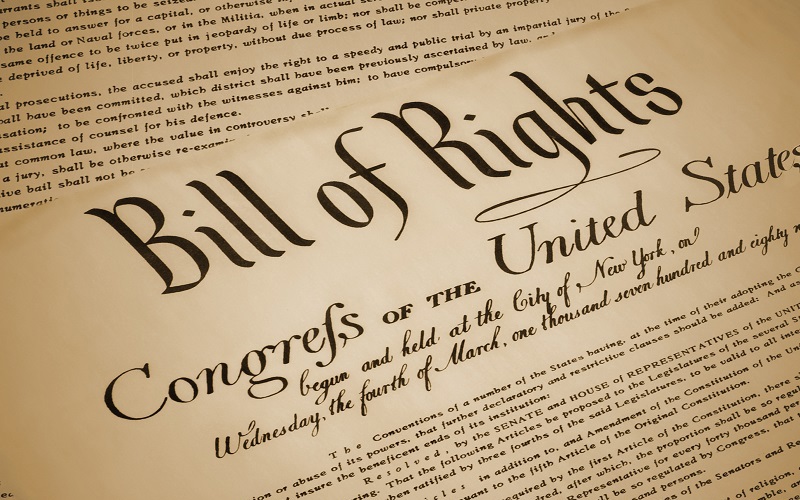 persons or things to be seized.
be held to answer for a capital, or otherwise
the land or Naval forces, or in the Militia, when in actual
same offence to be twice put in jeopardy of life or limb; nor shall be compelled
deprived of life, liberty, or property, without due process of law; nor shall private property
prosecutions, the accused shall enjoy the right to a speedy and public trial by an impartial jury of the
shall have been committed, which district shall have been previously ascertained by law,
to be confronted with the witnesses against him; to have compulsory
assistance of counsel for his defence.
common law, where the value in controversy
a jury, shall be otherwise
bail shall not be
Bill of Rights
Congreſs OF THE United States
begun and held at the City of New York, on
Wednesday, the fourth of March, one thousand seven hundred and eighty
The Conventions of a number of the States having, at the time of their adopting the
or abuse of its powers, that further declaratory and restrictive clauses should be added: And as
insure the beneficent ends of its institution:
Resolved, by the SENATE and HOUSE of REPRESENTATIVES of the
That the following Articles be proposed to the Legislatures of the several
when ratified by three fourths of the said Legislatures, to be valid to all
in addition to, and Amendment of the Constitution of the
to the fifth Article of the Original Constitution.
required by the first Article of the Constitution, there
after which, the proportion shall be so
Representative for every forty thousand
be so regulated by Congress, that
persons.
of the Senators and
of religion,